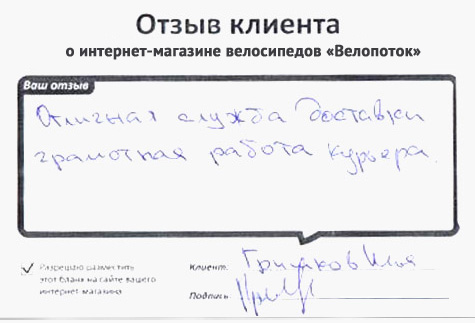 Отзыв клиента
о интернет-магазине велосипедов «Велопоток»
Ваш отзыв
Отличная служба доставки
грамотная работа курьера.
Разрешаю разместить
этот бланк на сайте вашего
интернет-магазина
Клиент: Илья
Подпись